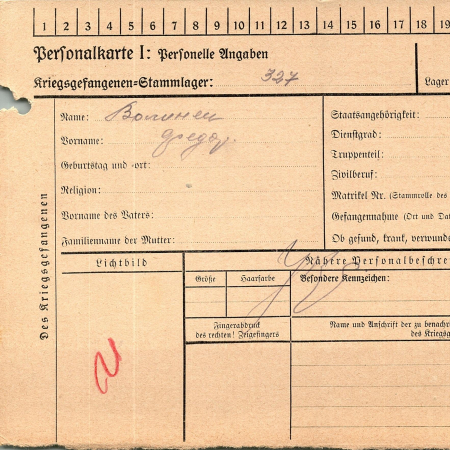 1 2 3 4 5 6 7 8 9 10 11 12 13 14 15 16 17 18 19
Personalkarte I: Personelle Angaben
Kriegsgefangenen-Stammlager: 327
Lager
Des Kriegsgefangenen
Name: Волинец
Vorname: Федор.
Geburtstag und -ort:
Religion:
Vorname des Vaters:
Familienname der Mutter:
Staatsangehörigkeit:
Dienstgrad:
Truppenteil:
Zivilberuf:
Matrikel Nr. (Stammrolle des
Gefangennahme (Ort und Dat
Ob gesund, krank, verwunde
Lichtbild
Nähere Personalbeschre
Größe
Haarfarbe
Besondere Kennzeichen:
Fingerabdruck
des rechten! Zeigefingers
Name und Anschrift der zu benachr
des Kriegsg